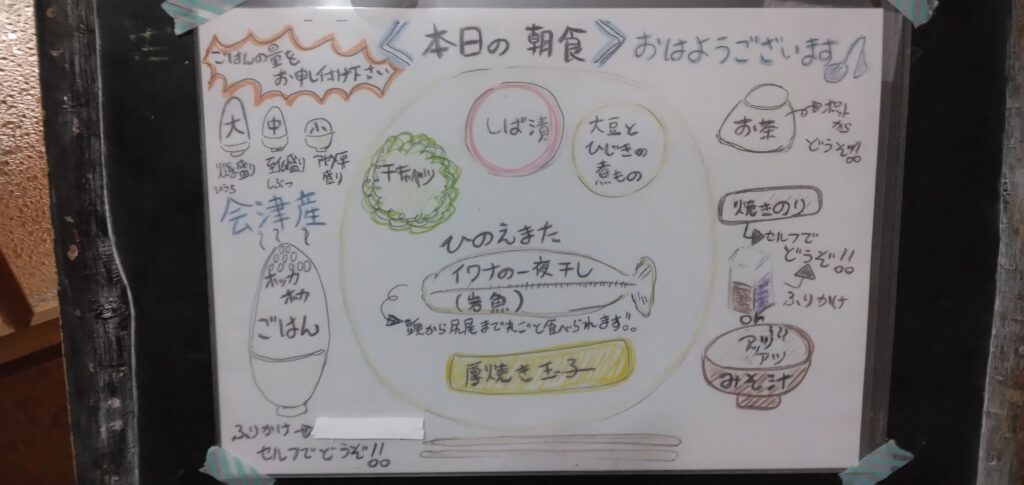 ごはんの量を
お申し付け下さい
《本日の朝食》
おはようございます
大
中
小
燧盛り
ひうち
至仏盛り
しぶつ
アヤメ平
盛り
会津産
ホッカ
ホカ
ごはん
ふりかけ
セルフでどうぞ!!
しば漬
大豆と
ひじきの
煮もの
千キャベツ
ひのえまた
イワナの一夜干し
(岩魚)
頭から尻尾まで丸ごと食べられます
厚焼き玉子
お茶
ポット
が
どうぞ!!
焼きのり
セルフで
どうぞ!!
ふりかけ
アッツ
アツ
みそ汁